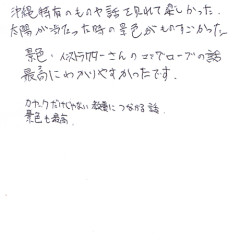 沖縄特有のものや話を見れて楽しかった.
太陽が当たった時の景色がものすごかった.
景色・インストラクターさんのマングローブの話
最高にわかりやすかったです.
カヤックだけじゃない教養につながる話.
景色も最高.